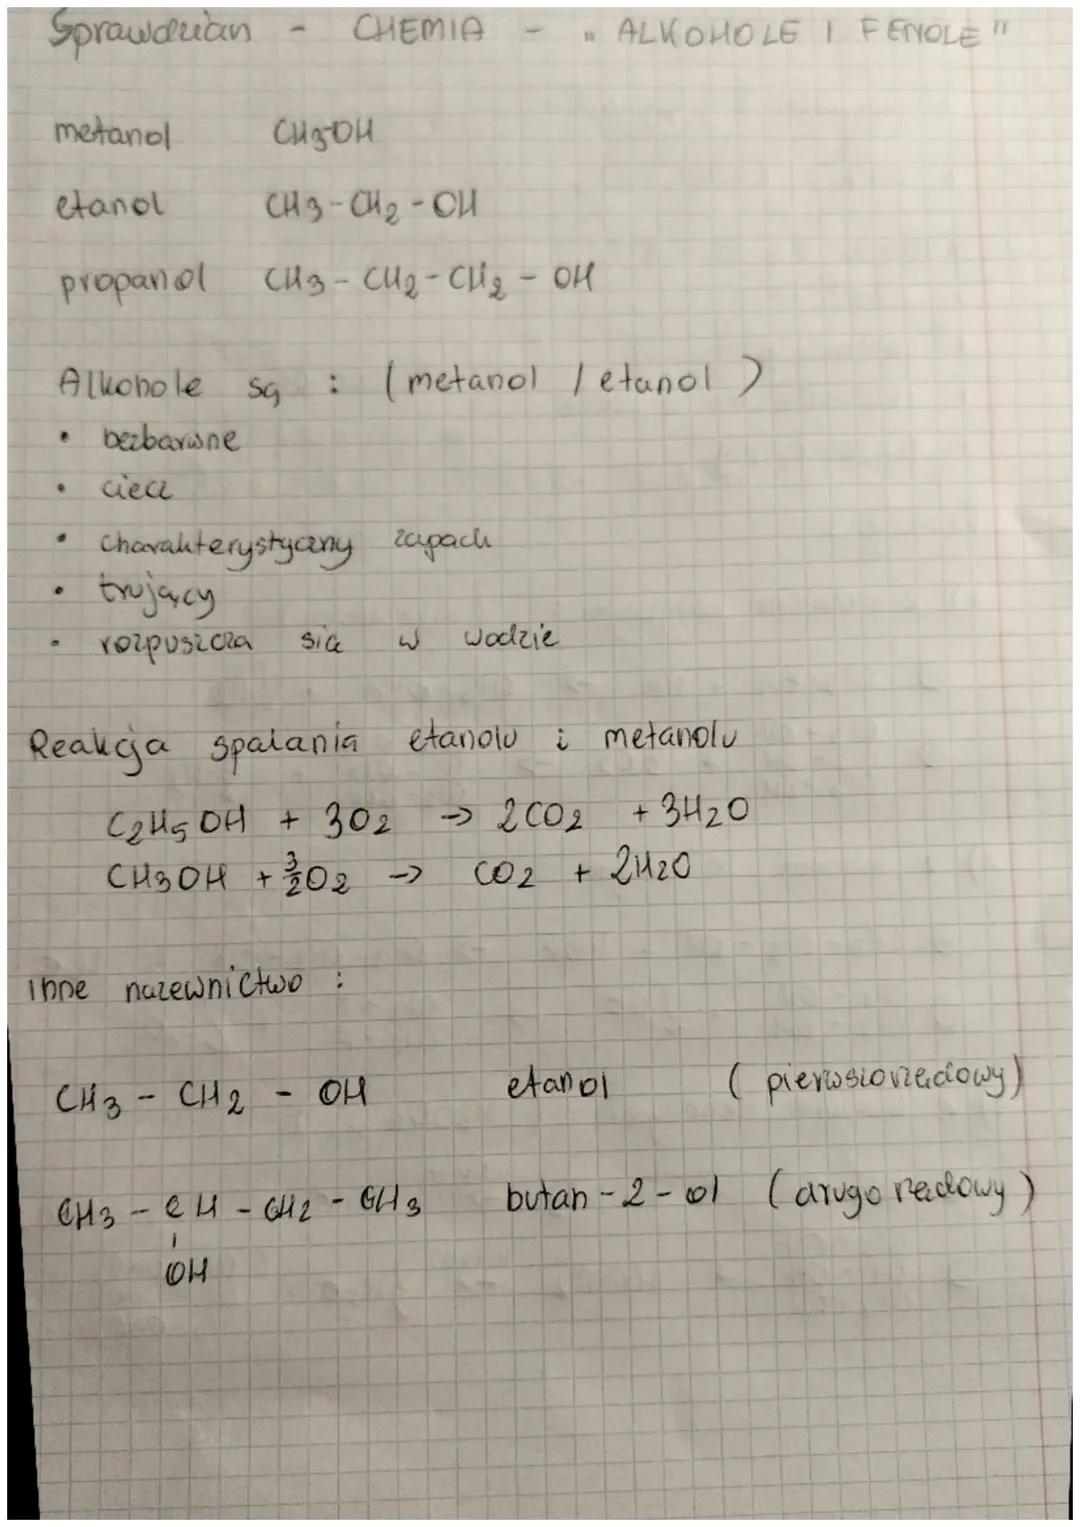 Sprawdzian - CHEMIA - „ALKOHOLE I FENOLE"
metanol CH3OH
etanol CH3-CH2-OH
propanol CH3-CH2-CH2-OH
Alkohole są : (metanol / etanol)
• bezbarwne
• ciecz
• charakterystyczny zapach
• trujący
• rozpuszcza się w wodzie
Reakcja spalania etanolu i metanolu
C2H5OH + 3O2 -> 2CO2 + 3H2O
CH3OH + 3/2O2 -> CO2 + 2H2O
inne nazewnictwo :
CH3 - CH2 - OH etanol (pierwszorzędowy)
CH3 - CH - CH2 - CH3 butan-2-ol (drugorzędowy)
OH